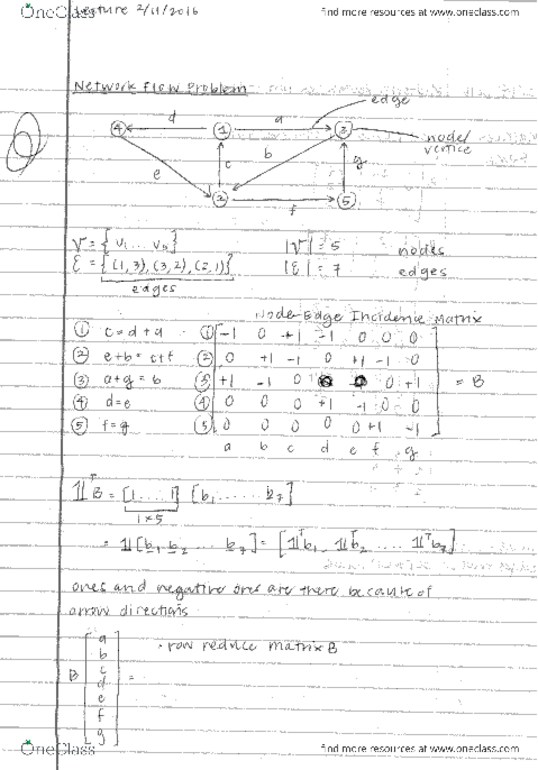 OneClass
Lecture 2/11/2016
find more resources at www.oneclass.com
Network Flow Problem
edge
4 d 1 a 3
node/
vertice
e c b g
2 f 5
V = { v₁ ... v₅ } |V| = 5 nodes
ε = { (1,3), (3,2), (2,1) } |ε| = 7 edges
edges
Node-Edge Incidence Matrix
① c = d + a ① -1 0 +1 -1 0 0 0
② e + b = c + f ② 0 +1 -1 0 +1 -1 0
③ a + g = b ③ +1 -1 0 0 +1 = B
④ d = e ④ 0 0 0 +1 -1 0 0
⑤ f = g ⑤ 0 0 0 0 0 +1 -1
a b c d e f g
𝟙ᵀB = [1 .... 1] [b₁ ...... b₇]
1×5
= 𝟙[b₁ b₂ ... b₇] = [𝟙ᵀb₁ 𝟙ᵀb₂ .... 𝟙ᵀb₇]
ones and negative ones are there because of
arrow directions
a
b
c
B d =
e
f
g
· row reduce matrix B
OneClass
find more resources at www.oneclass.com